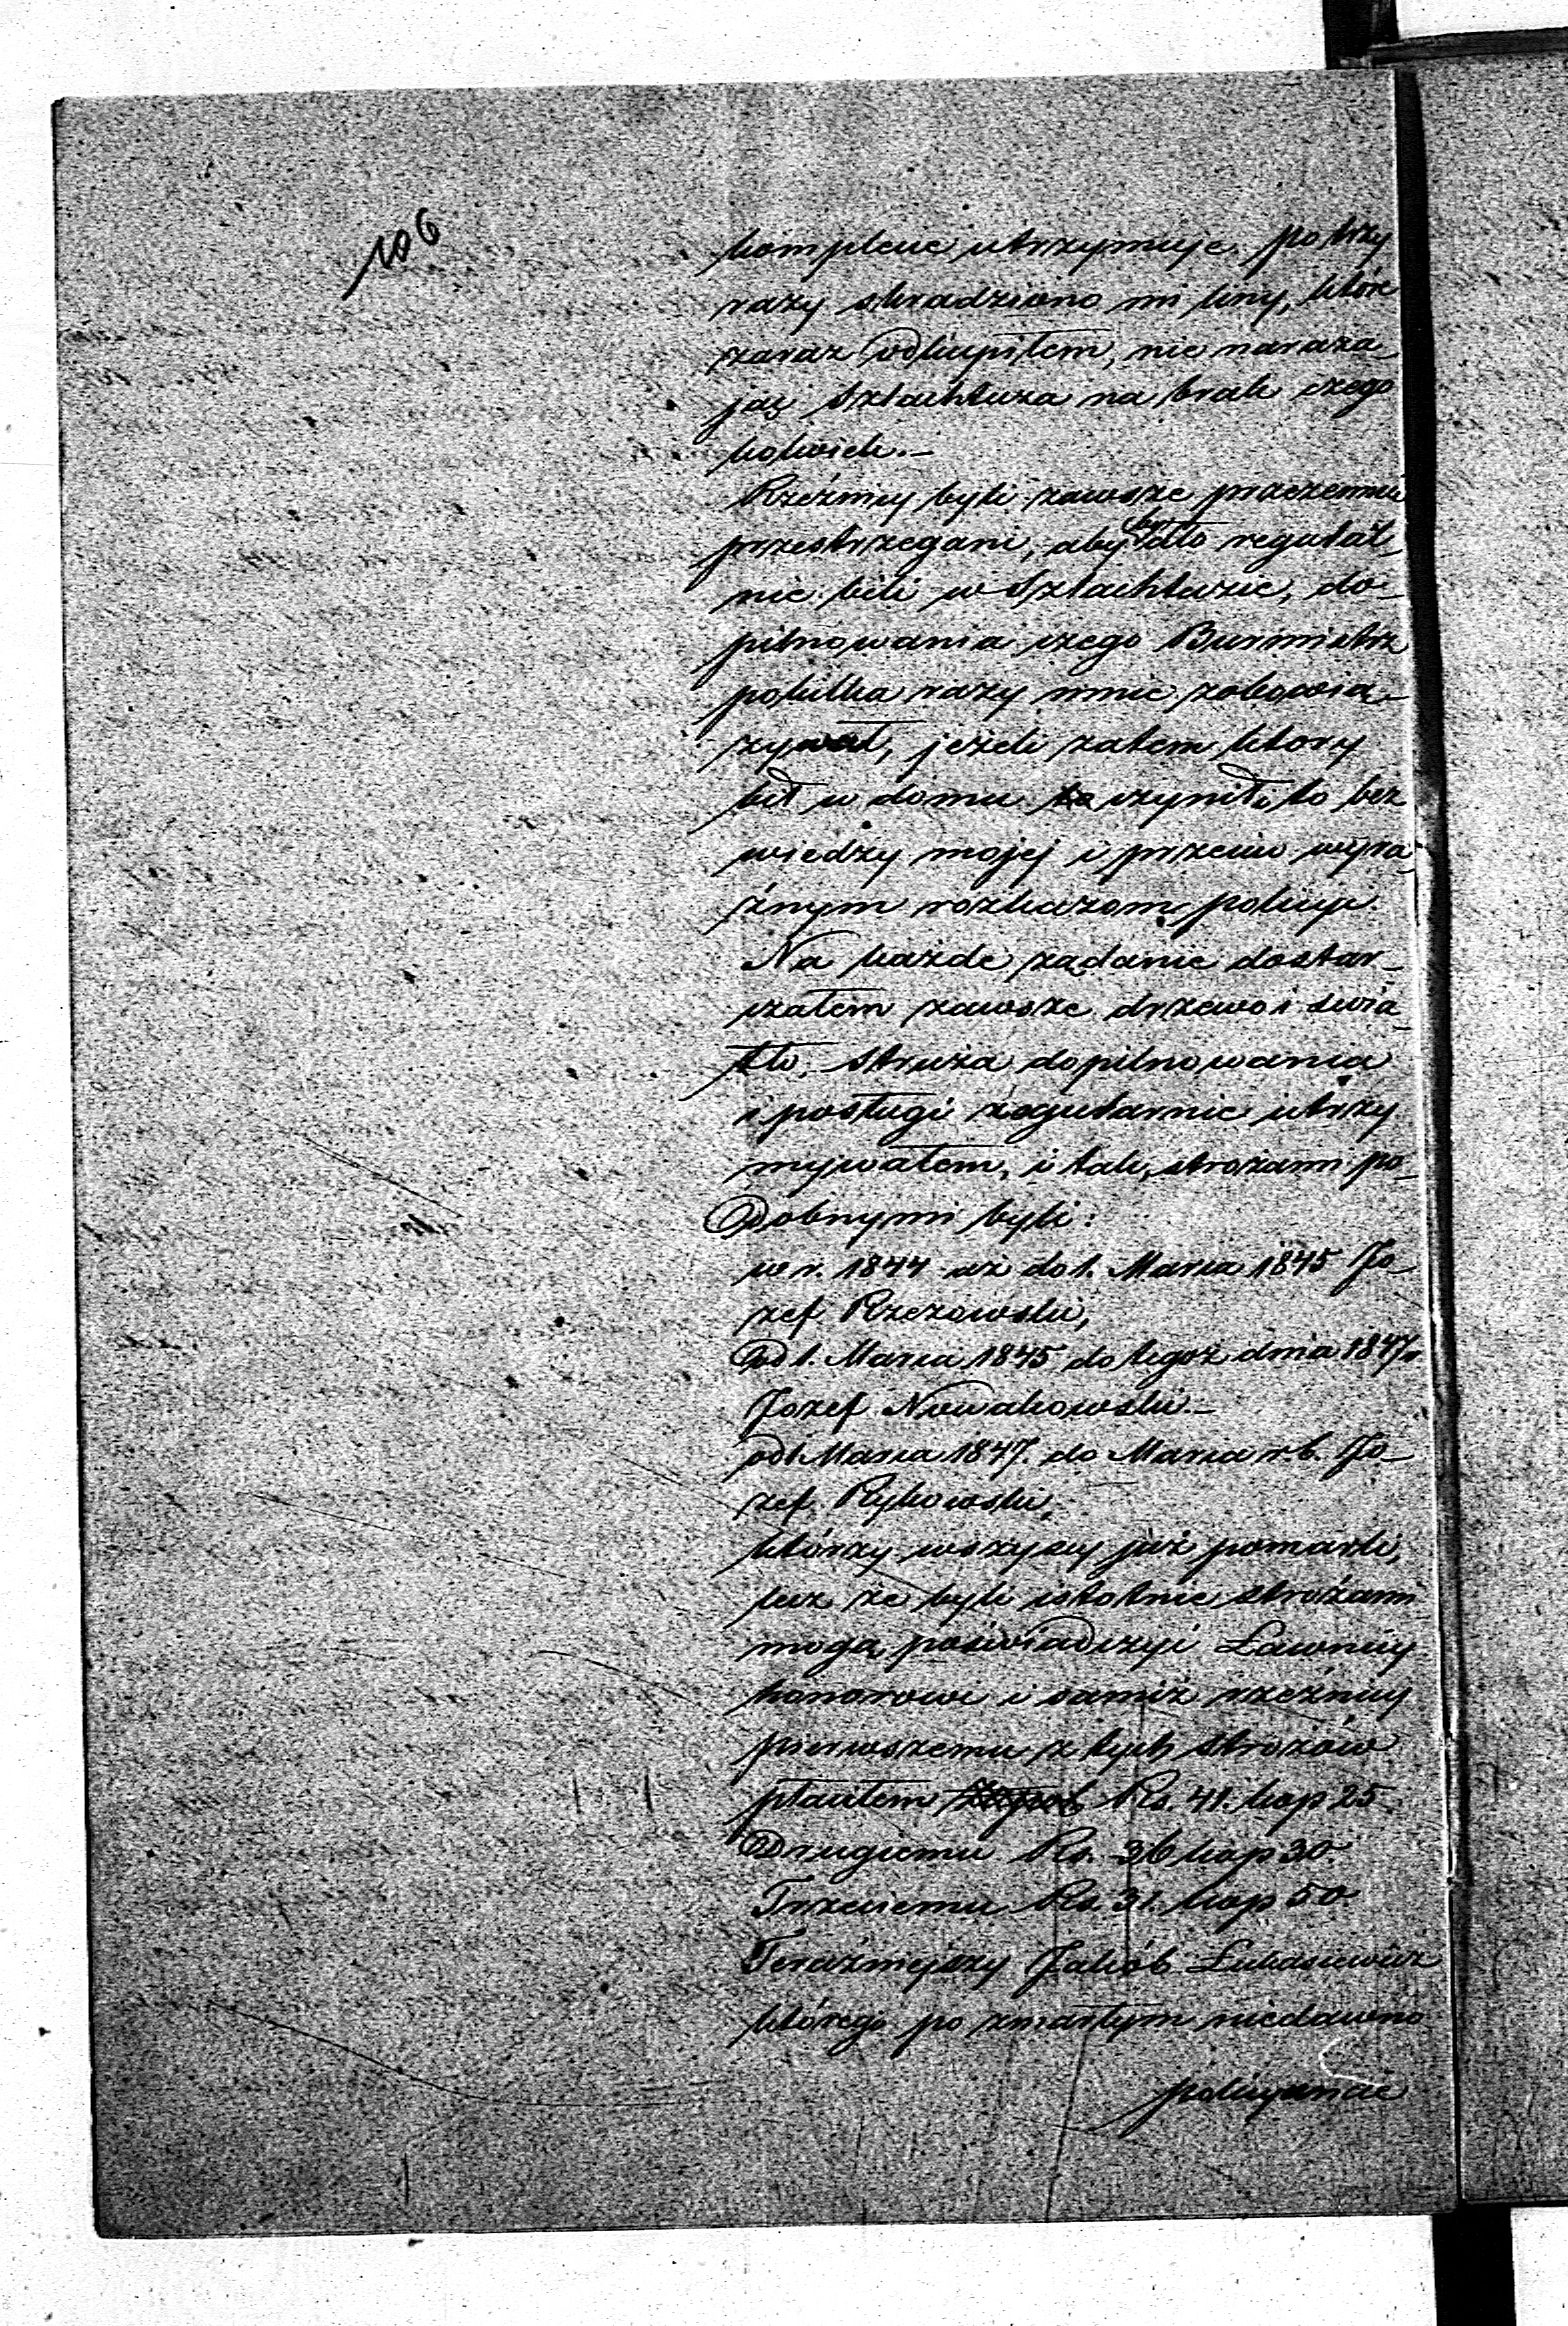 106
komplecie utrzymuje po trzy
razy skradziono mi liny, które
zaraz odkupiłem, nie naraża_
jąc Szlachtuza na brak czego
kolwiek._
Rzeźnicy byli zawsze przezemnie
przestrzegani, aby bydło regular_
nie bili w Szlachtuzie, do_
pilnowania czego Burmistrz
pokilka razy mnie zobowią_
zywał, jeżeli zatem ktory
bił w domu to czynił to bez
wiedzy mojej i przeciw wyra_
źnym rozkazom policyi.
Na każde żądanie dostar_
czałem zawsze drzewo i swia_
tło, struża dopilnowania
i posługi regularnie utrzy
mywałem, i tak, strożami po_
dobnymi byli:
w r. 1844 aż do 1. Marca 1845 Jo_
zef Rzezowski,
od 1. Marca 1845 do tegoż dnia 1847 r
Jozef Nowakowski._
od 1. Marca 1847. do Marca r. b. Jo_
zef Rykowski,
którzy wszyscy już pomarli,
lecz że byli istotnie strożami
mogą poświadczyć Ławnicy
honorowi i samiż rzeźnicy
pierwszemu z tych strożów
płaciłem Rs. 41. kop 25.
Drugiemu Rs. 36 kop 30.
Trzeciemu Rs. 31. kop 50.
Teraźniejszy Jakób Łukasiewicz
którego po zmarłym niedawno
policyancie